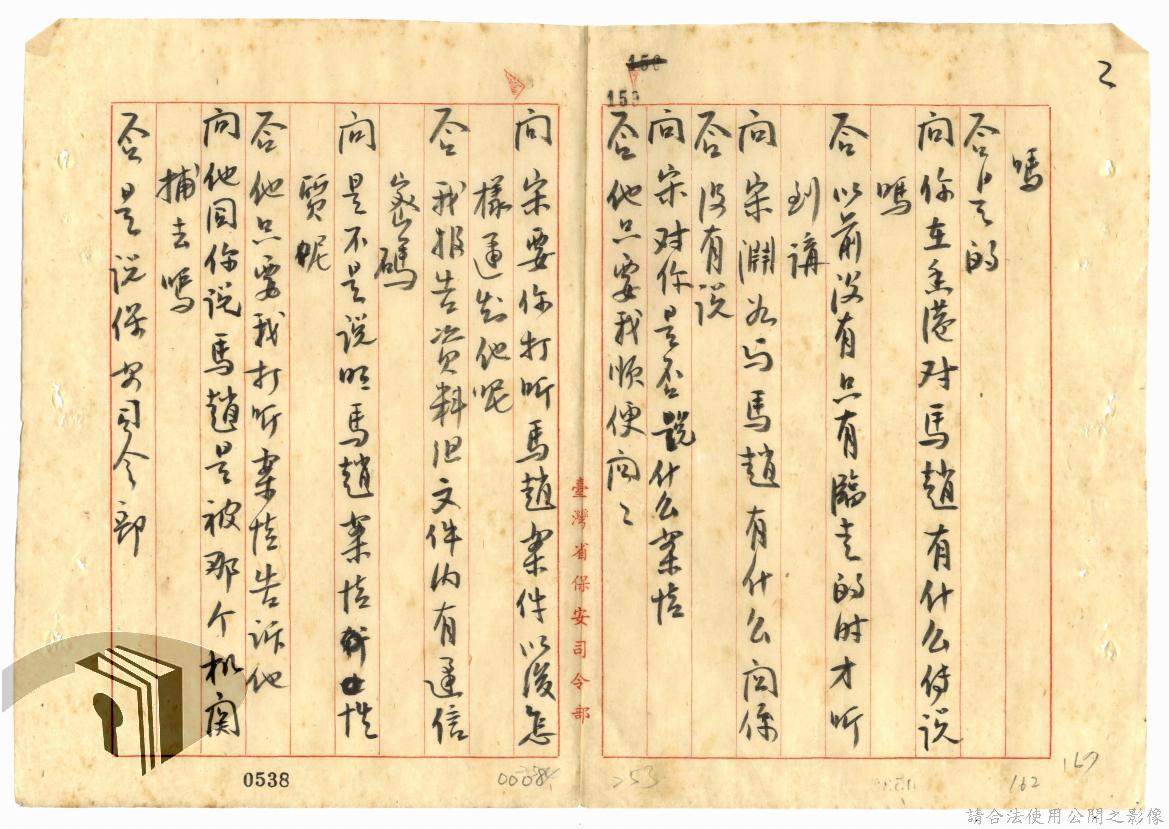 嗎
答 是的
問 你在香港对馬趙有什么傳说
嗎
答 以前没有只有臨走的时才听
到講
問 宋淵如与馬趙有什么関係
答 没有说
問 宋对你是否說什么案情
答 他只要我顺便问々
臺灣省保安司令部
問 宋要你打听馬趙案件以後怎
樣通知他呢
答 我报告資料但文件内有通信
密碼
問 是不是说明馬趙案情 性
質呢
答 他只要我打听案情告诉他
問 他回你说馬趙是被那个机関
捕去嗎
答 是说保安司令部
2
150
159
0538
00084
253
162
167
請合法使用公開之影像